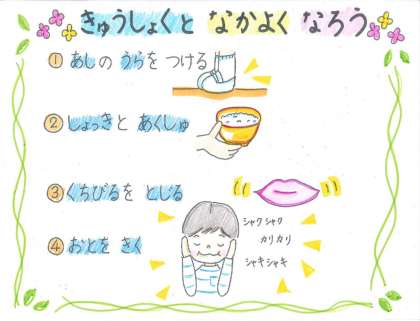 きゅうしょくと なかよく なろう
① あしの うらを つける
② しょっきと あくしゅ
③ くちびるを とじる
④ おとを きく
シャクシャク
カリカリ
シャキシャキ